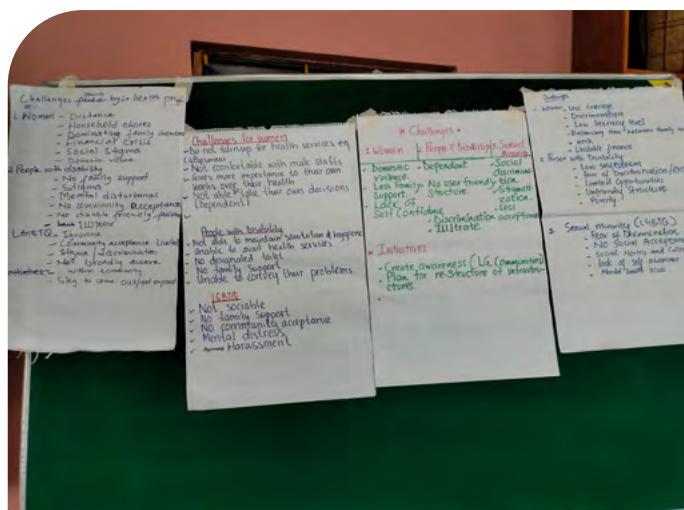 Challenges faced by in health prog
1. Women - Distance
- Household chores
- Dominating family members
- Financial crisis
- Social stigma
- Domestic
2. People with disability
- No family support
- Stigma
- Mental disturbance
- No community acceptance
- No disable friendly
- Illiterate
LGBTQ - Ignorance
- Community acceptance
- Stigma / Discrimination
- Not broadly aware
within community
- Shy to come out/get exposed
Challenges for women
- Do not turnup for health services eg
- Not comfortable with male staffs
- Gives more importance to their own
works over their health
- Not able make their own decisions
(Dependent)
People with Disability
- Not able to maintain sanitation & hygiene
- Unable to avail health services
- No designated
- No family support
- Unable to convey their problems
LGBTQ
- Not sociable
- No family support
- No community acceptance
- Mental distress
- Harassment
* Challenges *
1. Women
- Domestic
violence.
- Less family
support.
- Lack of
Self Confidence
2. People & Disability
- Dependent
- No user friendly
Structure.
- Discrimination
- Illitrate
3. Sexual
Minority
- Social
discrimina-
tion.
- Stigmati-
zation.
- Less
acceptance
* Initiatives
- Create awareness (LG, Communities)
- Plan for re-structure of infrastru-
ctures.
Challenges
1. Women
- Discrimination
- Low literacy level
- Balancing time between family and
work
- Unstable finance
2. Person with Disability
- Low
- fear of Discrimination
- Limited Opportunities
- Unfriendly Structure
- Poverty
3. Sexual minority (LGBTQ)
- Fear of Discrimination
- No Social Acceptance
- Social Norms and
- lack of self
- Mental health issues